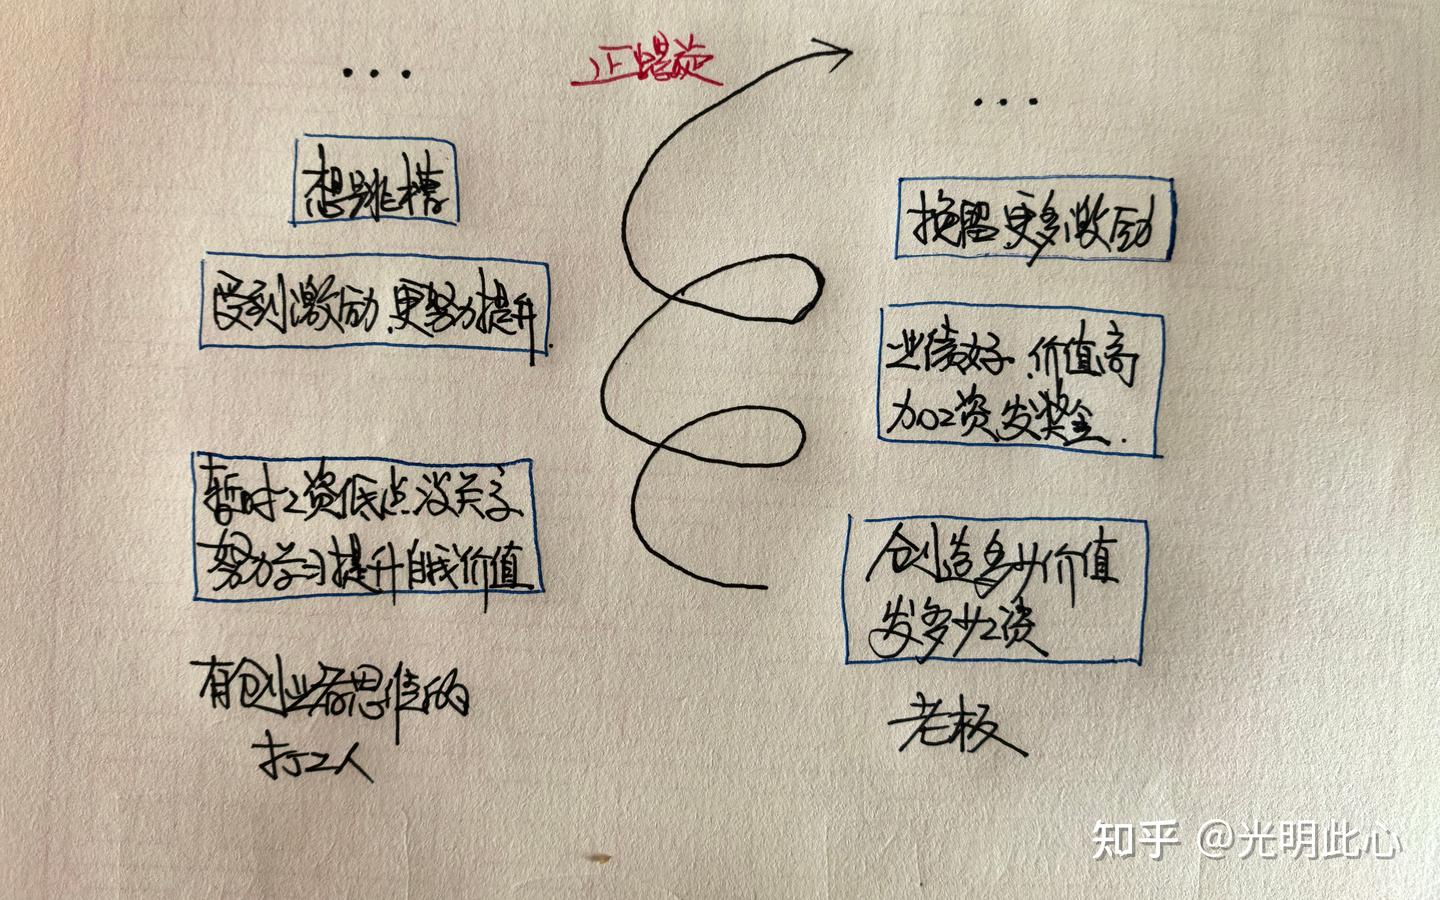 ...
正螺旋
...
想跳槽
挽留 更多激励
受到激励 更努力提升.
业绩好.价值高
加工资 发奖金.
暂时工资低点没关系
努力学习提升自我价值
创造多少价值
发多少工资
有创业者思维的
打工人
老板
知乎 @光明此心